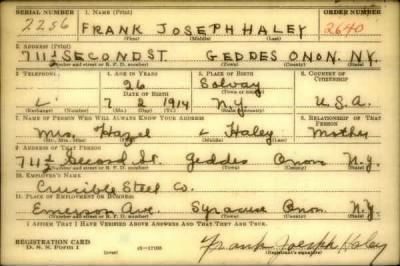 SERIAL NUMBER 1. NAME (Print) ORDER NUMBER
2256 FRANK JOSEPH HALEY 2640
(First) (Middle) (Last)
2. ADDRESS (Print)
711½ SECOND ST. GEDDES ONON. N.Y.
(Number and street or R. F. D. number) (Town) (County) (State)
3. TELEPHONE 4. AGE IN YEARS 5. PLACE OF BIRTH 6. COUNTRY OF CITIZENSHIP
26 Solvay
DATE OF BIRTH (Town or county)
7 2 1914 N.Y. U.S.A.
(Exchange) (Number) (Mo.) (Day) (Yr.) (State or country)
7. NAME OF PERSON WHO WILL ALWAYS KNOW YOUR ADDRESS 8. RELATIONSHIP OF THAT PERSON
Mrs. Hazel L Haley Mother
(Mr., Mrs., Miss) (First) (Middle) (Last)
9. ADDRESS OF THAT PERSON
711½ Second St. Geddes Onon N.Y.
(Number and street or R. F. D. number) (Town) (County) (State)
10. EMPLOYER'S NAME
Crucible Steel Co.
11. PLACE OF EMPLOYMENT OR BUSINESS
Emerson Ave. Syracuse Onon. N.Y.
(Number and street or R. F. D. number) (Town) (County) (State)
I AFFIRM THAT I HAVE VERIFIED ABOVE ANSWERS AND THAT THEY ARE TRUE.
REGISTRATION CARD
D. S. S. Form 1 Frank Joseph Haley
(Registrant's signature)